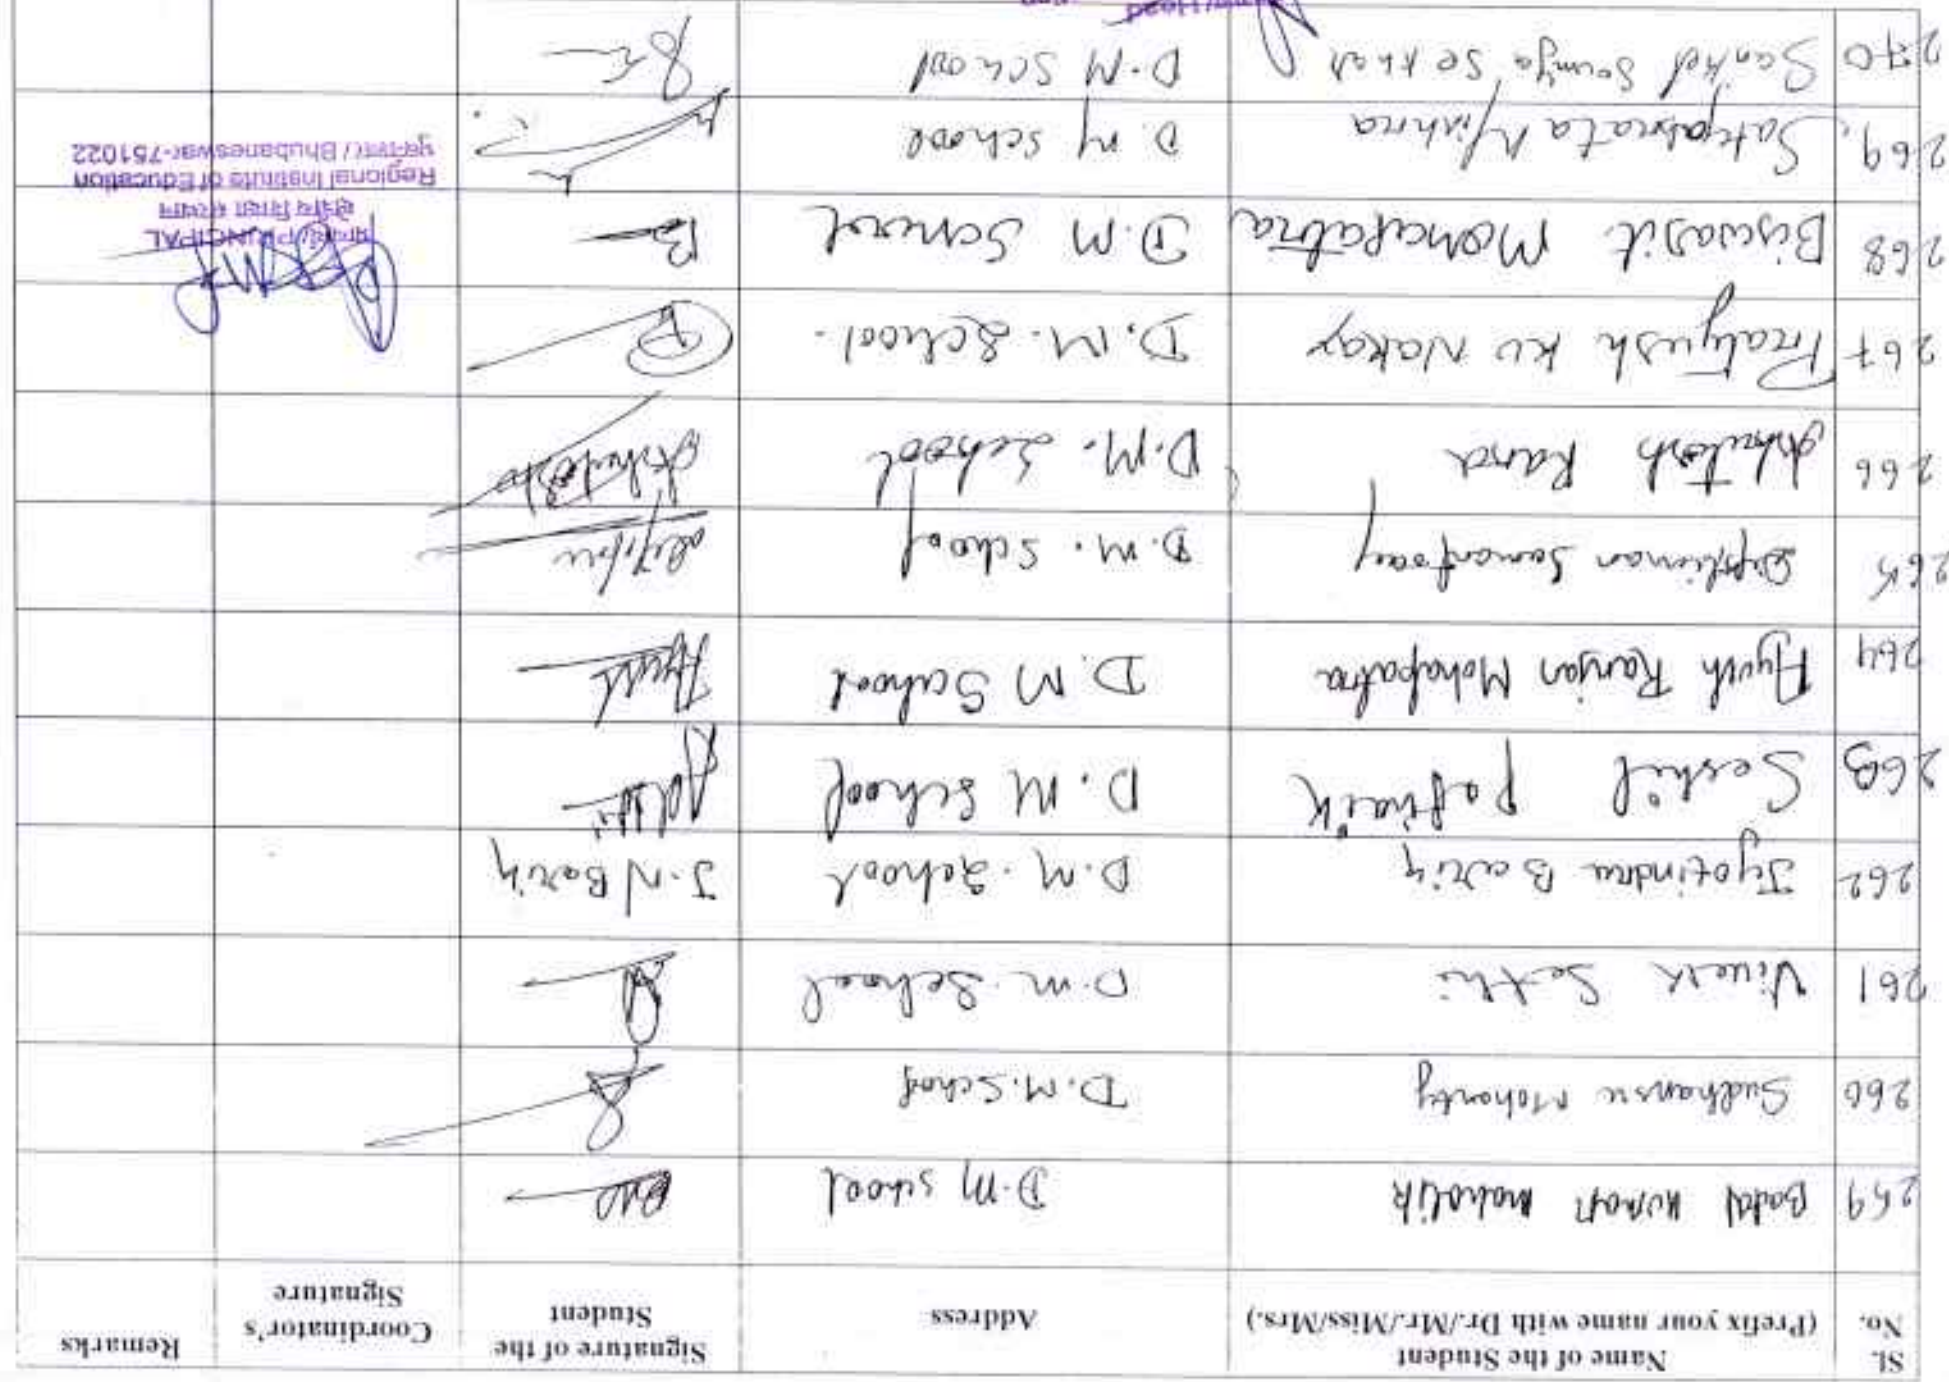 SL. No. Name of the Student (Prefix your name with Dr./Mr./Miss/Mrs.) Address Signature of the Student Coordinator's Signature Remarks
259 Badal kumar D.M School
260 Sudhansu Mohanty D.M. School
261 Vivek Sethi D.M. School
262 Jyotindra Barik D.M. School J.N Barik
263 Patnaik D.M School
264 Ayush Ranjan Mohapatra D.M School Ayush
265 Samantray D.M. School
266 Ashutosh Rana D.M. School Ashutosh
267 Pratyush Ku Nakay D.M. School.
268 Biswajit Mohapatra D.M School
269. Satyabrata Mishra D.M School
270 Soumya Sekhar D.M School
प्राचार्य/PRINCIPAL
क्षेत्रीय शिक्षा संस्थान
Regional Institute of Education
भुवनेश्वर / Bhubaneswar-751022